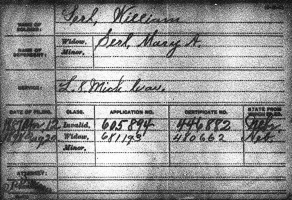 NAME OF SOLDIER: Serl, William
NAME OF DEPENDENT: Widow, Serl, Mary A.
Minor,
SERVICE: L. 8 Mich Cav.
DATE OF FILING. CLASS. APPLICATION NO. CERTIFICATE NO. STATE FROM
Invalid, 605894 446882 Nebr.
Aug 20 Widow, 681193 480662 Nebr.
Minor,
ATTORNEY: